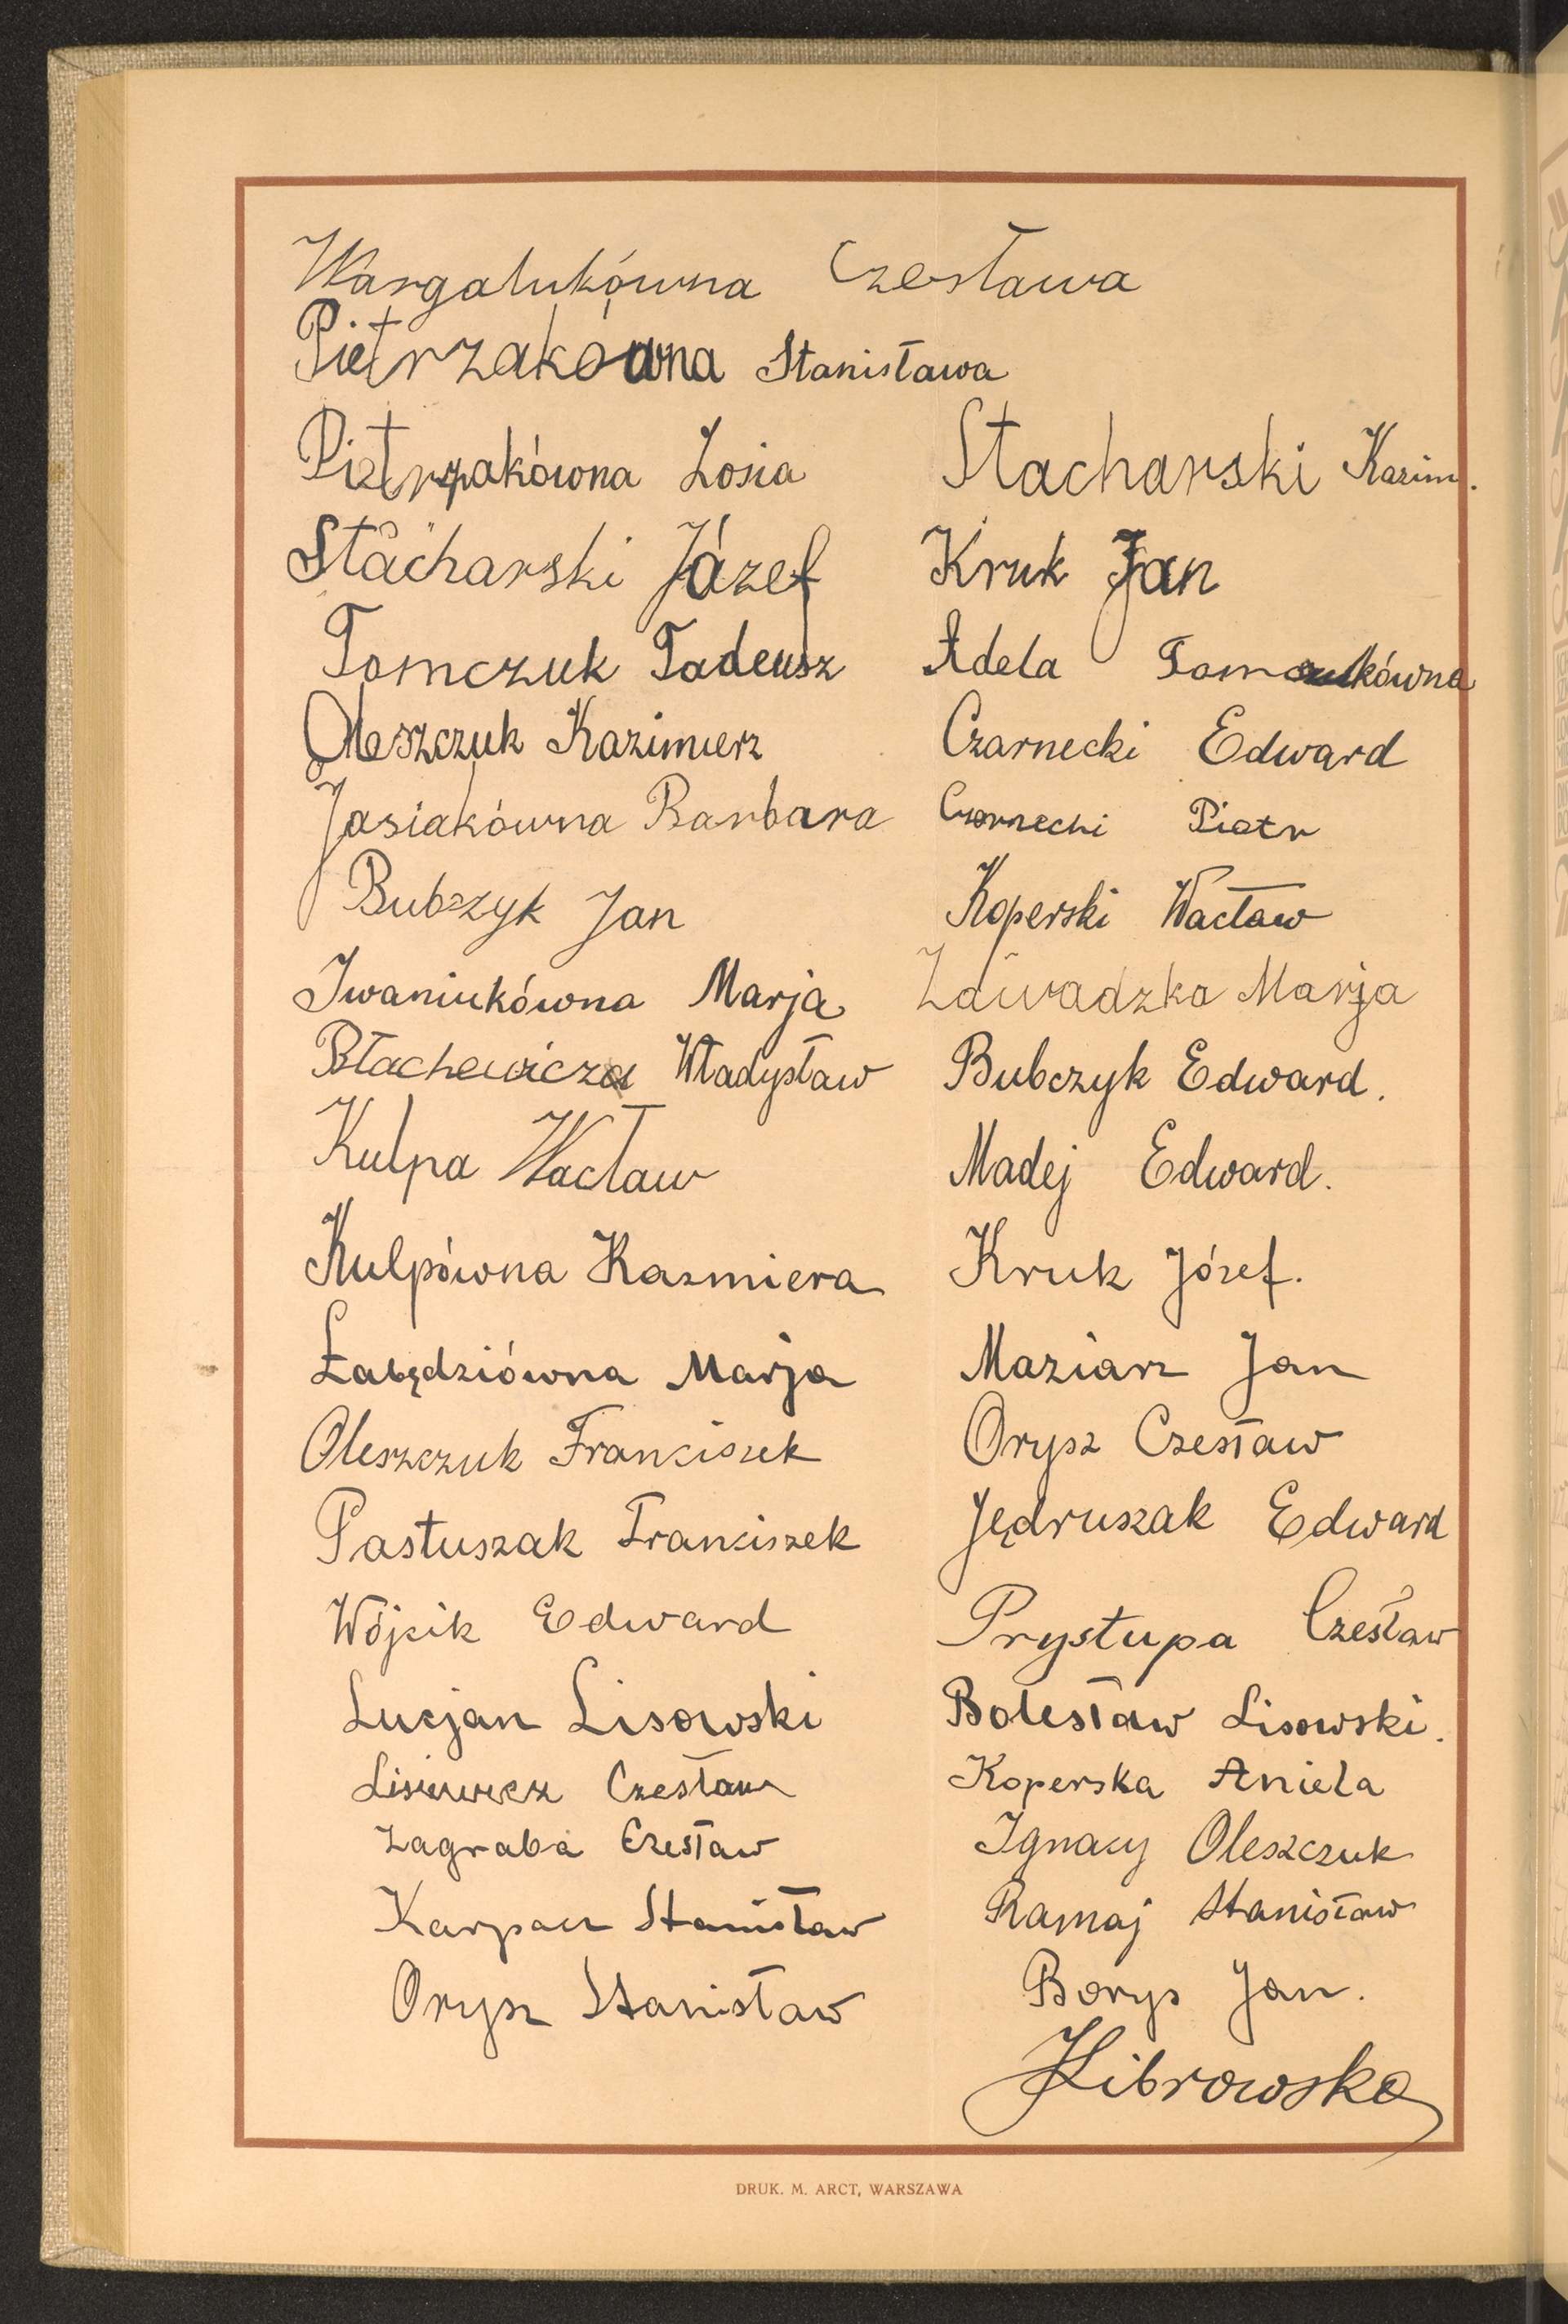 Wargalukówna Czesława
Pietrzakówna Stanisława
Pietrzakówna Zosia Stacharski Kazim.
Stacharski Józef Kruk Jan
Tomczuk Tadeusz Adela Tomczukówna
Oleszczuk Kazimierz Czarnecki Edward
Jasiakówna Barbara Czarnecki Piotr
Bubczyk Jan Koperski Wacław
Iwaniukówna Marja Zawadzka Marja
Błachewicz Władysław Bubczyk Edward.
Kulpa Wacław Madej Edward.
Kulpówna Kazmiera Kruk Józef.
Łabędziówna Marja Maziarz Jan
Oleszczuk Franciszek Orysz Czesław
Pastuszak Franciszek Jędruszak Edward
Wójcik Edward Prystupa Czesław
Lucjan Lisowski Bolesław Lisowski.
Lisiewicz Czesław Koperska Aniela
Zagraba Czesław Ignacy Oleszczuk
Karpacz Stanisław Ramaj Stanisław
Orysz Stanisław Borys Jan.
DRUK. M. ARCT, WARSZAWA